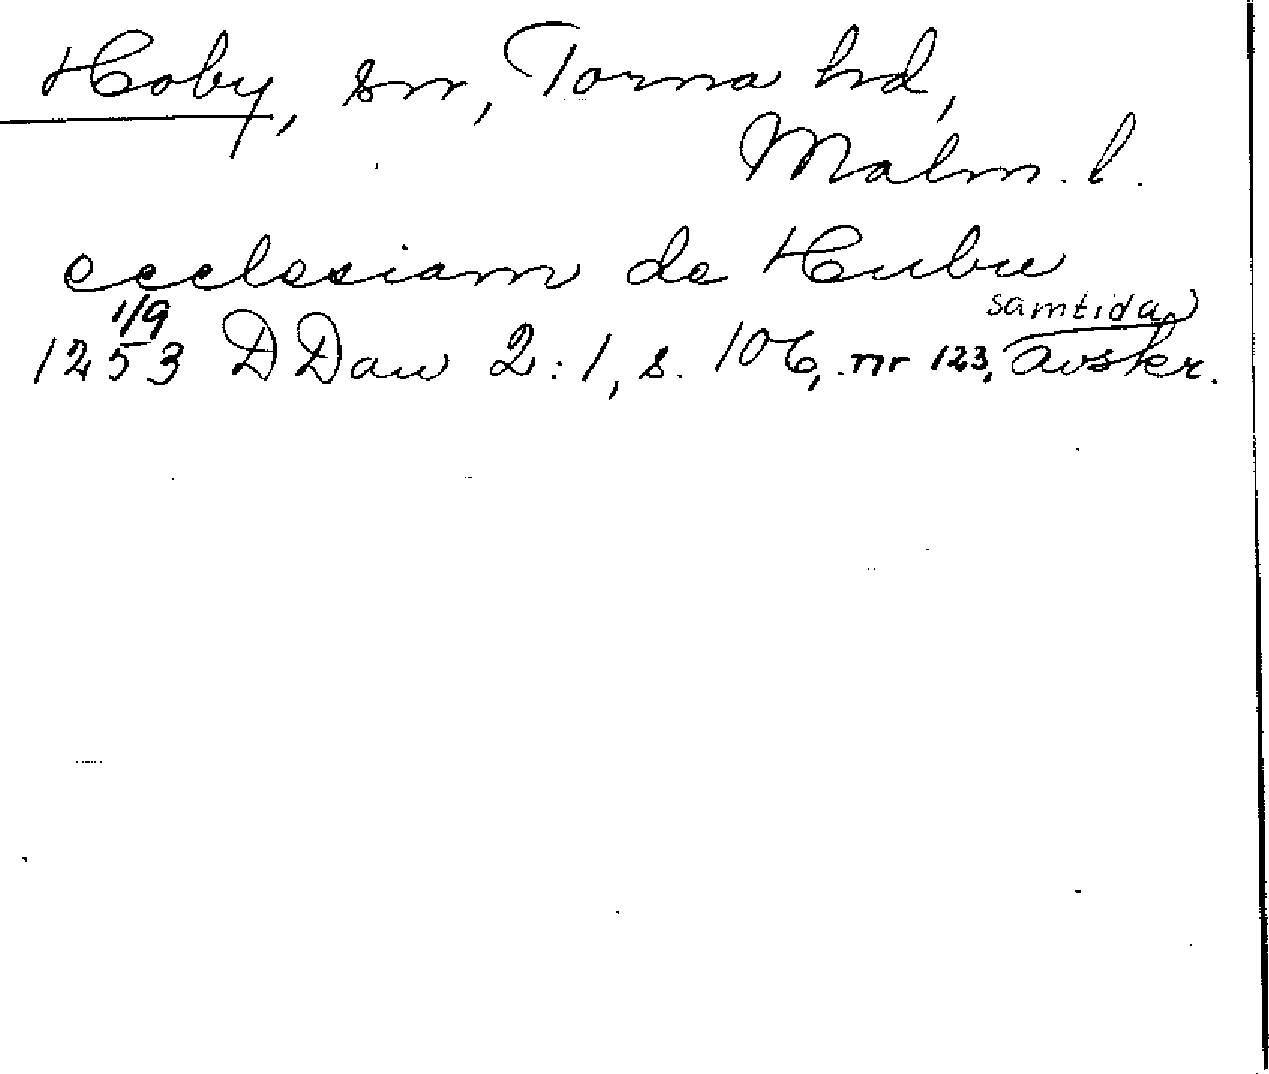 Hoby, sn, Torna hd,
Malm. l.
ecclesiam de Hubu
1/9 samtida
1253 DDan 2:1, s. 106, nr 123, avskr.